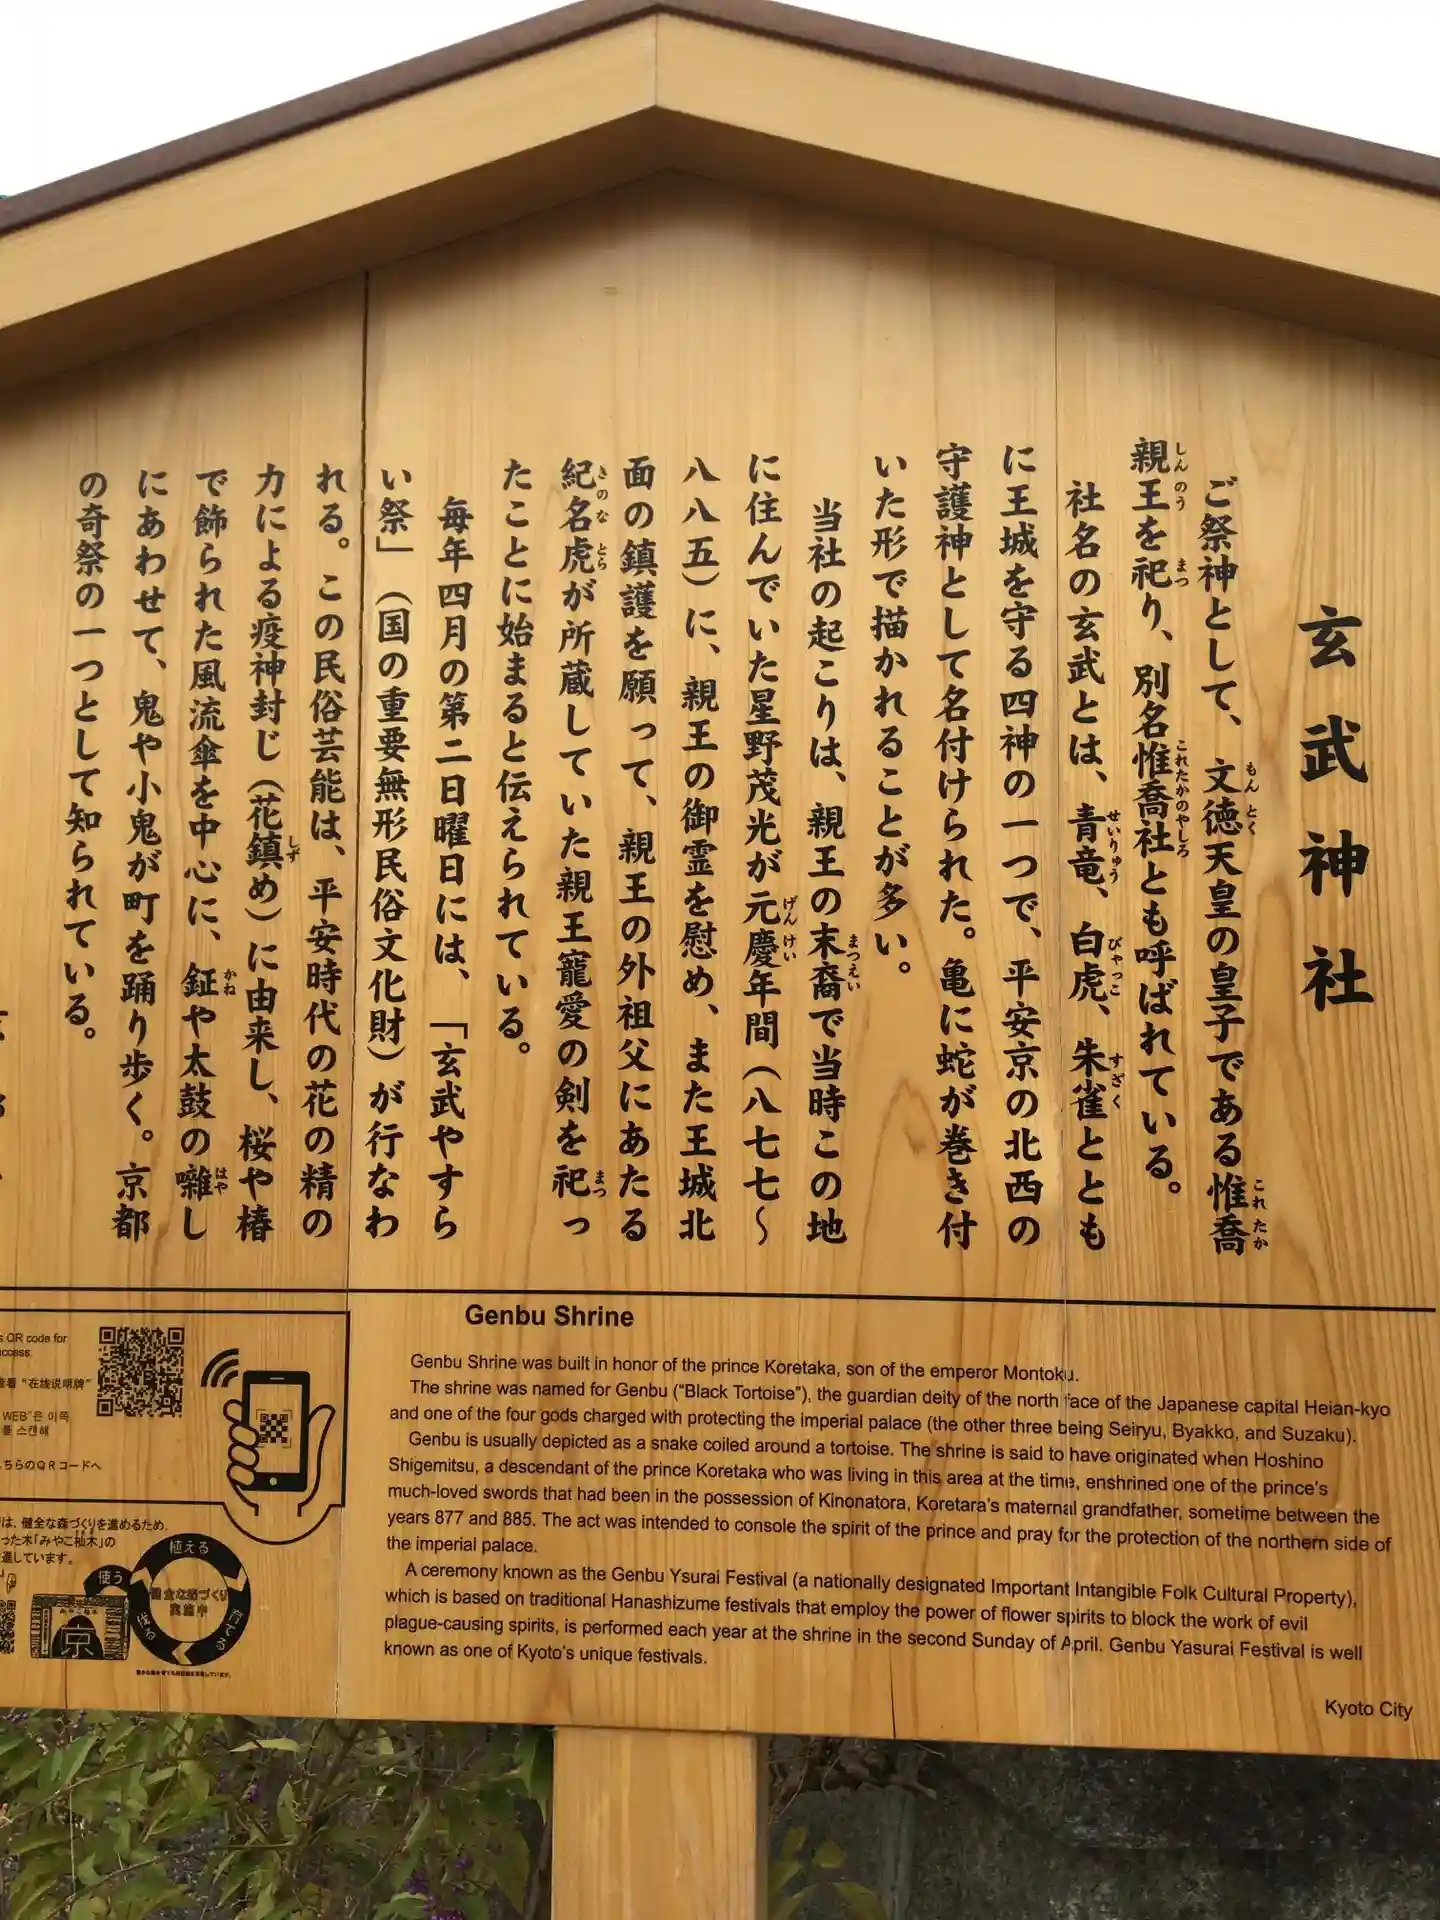 玄武神社
ご祭神として、文徳天皇の皇子である惟喬
親王を祀り、別名惟喬社とも呼ばれている。
社名の玄武とは、青竜、白虎、朱雀ととも
に王城を守る四神の一つで、平安京の北西の
守護神として名付けられた。亀に蛇が巻き付
いた形で描かれることが多い。
当社の起こりは、親王の末裔で当時この地
に住んでいた星野茂光が元慶年間（八七七～
八八五）に、親王の御霊を慰め、また王城北
面の鎮護を願って、親王の外祖父にあたる
紀名虎が所蔵していた親王寵愛の剣を祀っ
たことに始まると伝えられている。
毎年四月の第二日曜日には、「玄武やすら
い祭」（国の重要無形民俗文化財）が行なわ
れる。この民俗芸能は、平安時代の花の精の
力による疫神封じ（花鎮め）に由来し、桜や椿
で飾られた風流傘を中心に、鉦や太鼓の囃し
にあわせて、鬼や小鬼が町を踊り歩く。京都
の奇祭の一つとして知られている。
Genbu Shrine
Genbu Shrine was built in honor of the prince Koretaka, son of the emperor Montoku.
The shrine was named for Genbu (“Black Tortoise”), the guardian deity of the north face of the Japanese capital Heian-kyo
and one of the four gods charged with protecting the imperial palace (the other three being Seiryu, Byakko, and Suzaku).
Genbu is usually depicted as a snake coiled around a tortoise. The shrine is said to have originated when Hoshino
Shigemitsu, a descendant of the prince Koretaka who was living in this area at the time, enshrined one of the prince's
much-loved swords that had been in the possession of Kinonatora, Koretara's maternal grandfather, sometime between the
years 877 and 885. The act was intended to console the spirit of the prince and pray for the protection of the northern side of
the imperial palace.
A ceremony known as the Genbu Ysurai Festival (a nationally designated Important Intangible Folk Cultural Property),
which is based on traditional Hanashizume festivals that employ the power of flower spirits to block the work of evil
plague-causing spirits, is performed each year at the shrine in the second Sunday of April. Genbu Yasurai Festival is well
known as one of Kyoto's unique festivals.
Kyoto City
QR code for
“在线说明牌”
WEB"은 이쪽
를 스캔해
ちらのQRコードへ
は、健全な森づくりを進めるため、
った木「みやこ杣木」の
進しています。
植える
使う
育てる
伐る
健全な森づくり
実施中
京